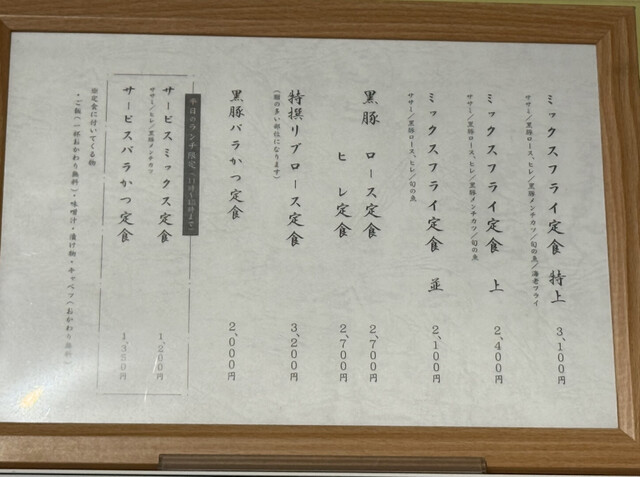 ミックスフライ定食 特上 3,100円
ササミ/黒豚ロース、ヒレ/黒豚メンチカツ/旬の魚/海老フライ
ミックスフライ定食 上 2,400円
ササミ/黒豚ロース、ヒレ/黒豚メンチカツ/旬の魚
ミックスフライ定食 並 2,100円
ササミ/黒豚ロース、ヒレ/旬の魚
黒豚 ロース定食 2,700円
ヒレ定食 2,700円
特撰リブロース定食 3,200円
(脂の多い部位になります)
黒豚バラかつ定食 2,000円
平日のランチ限定(11時～15時まで)
サービスミックス定食 1,200円
ササミ/ヒレ/黒豚メンチカツ
サービスバラかつ定食 1,350円
※定食に付いてくる物
・ご飯(一杯おかわり無料)・味噌汁・漬け物・キャベツ(おかわり無料)